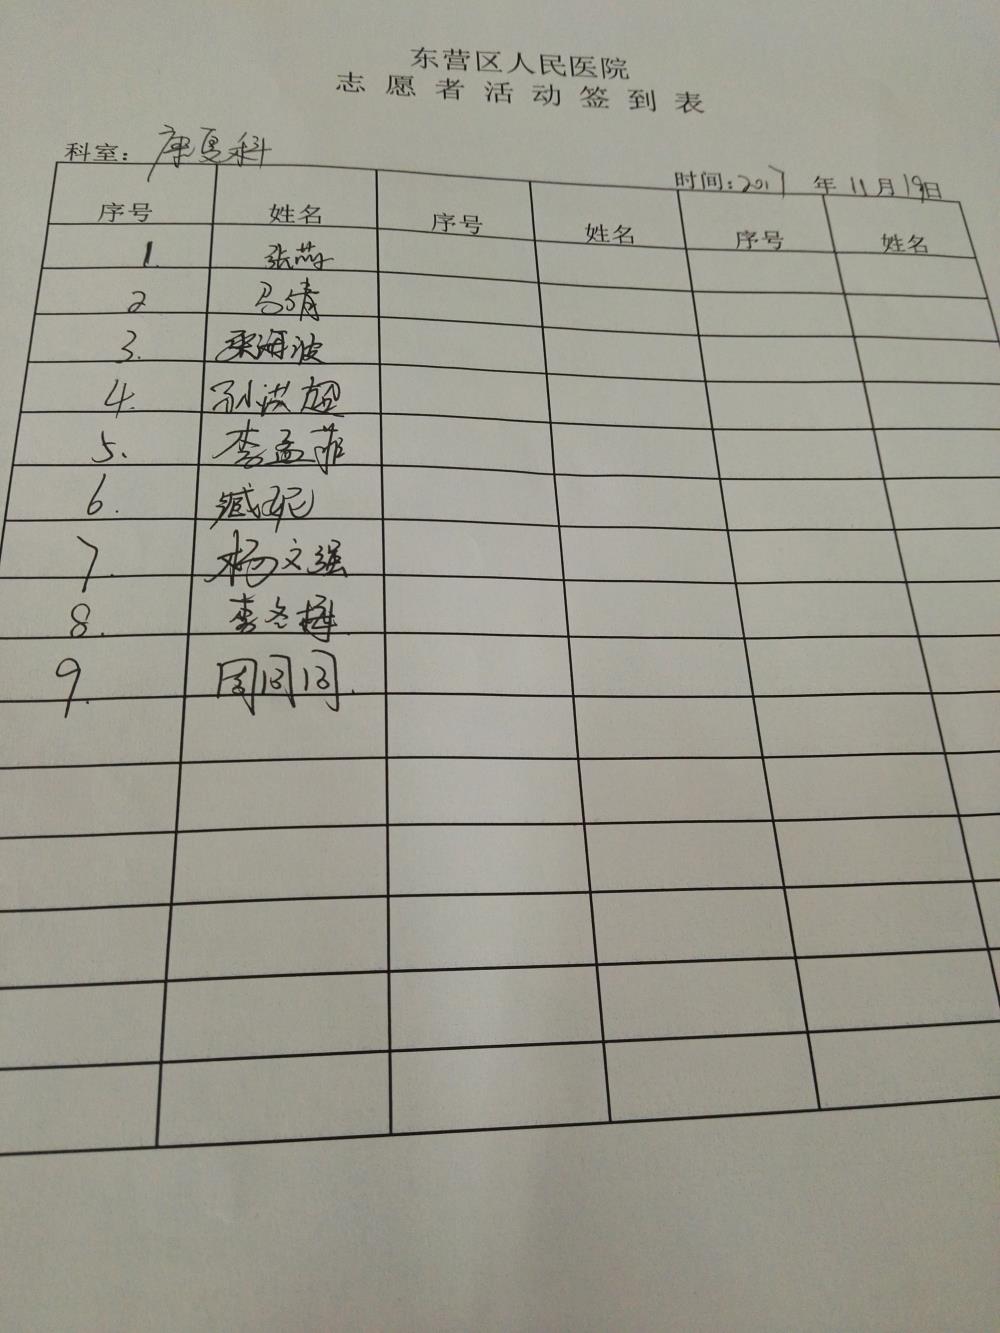 东营区人民医院
志愿者活动签到表
科室：康复科 时间：2017年11月19日
序号 姓名 序号 姓名 序号 姓名
1. 张萍
2 马倩
3. 海波
4. 孙洪超
5. 李孟菲
6. 臧妮
7. 杨文强
8. 李冬梅
9. 周同同.